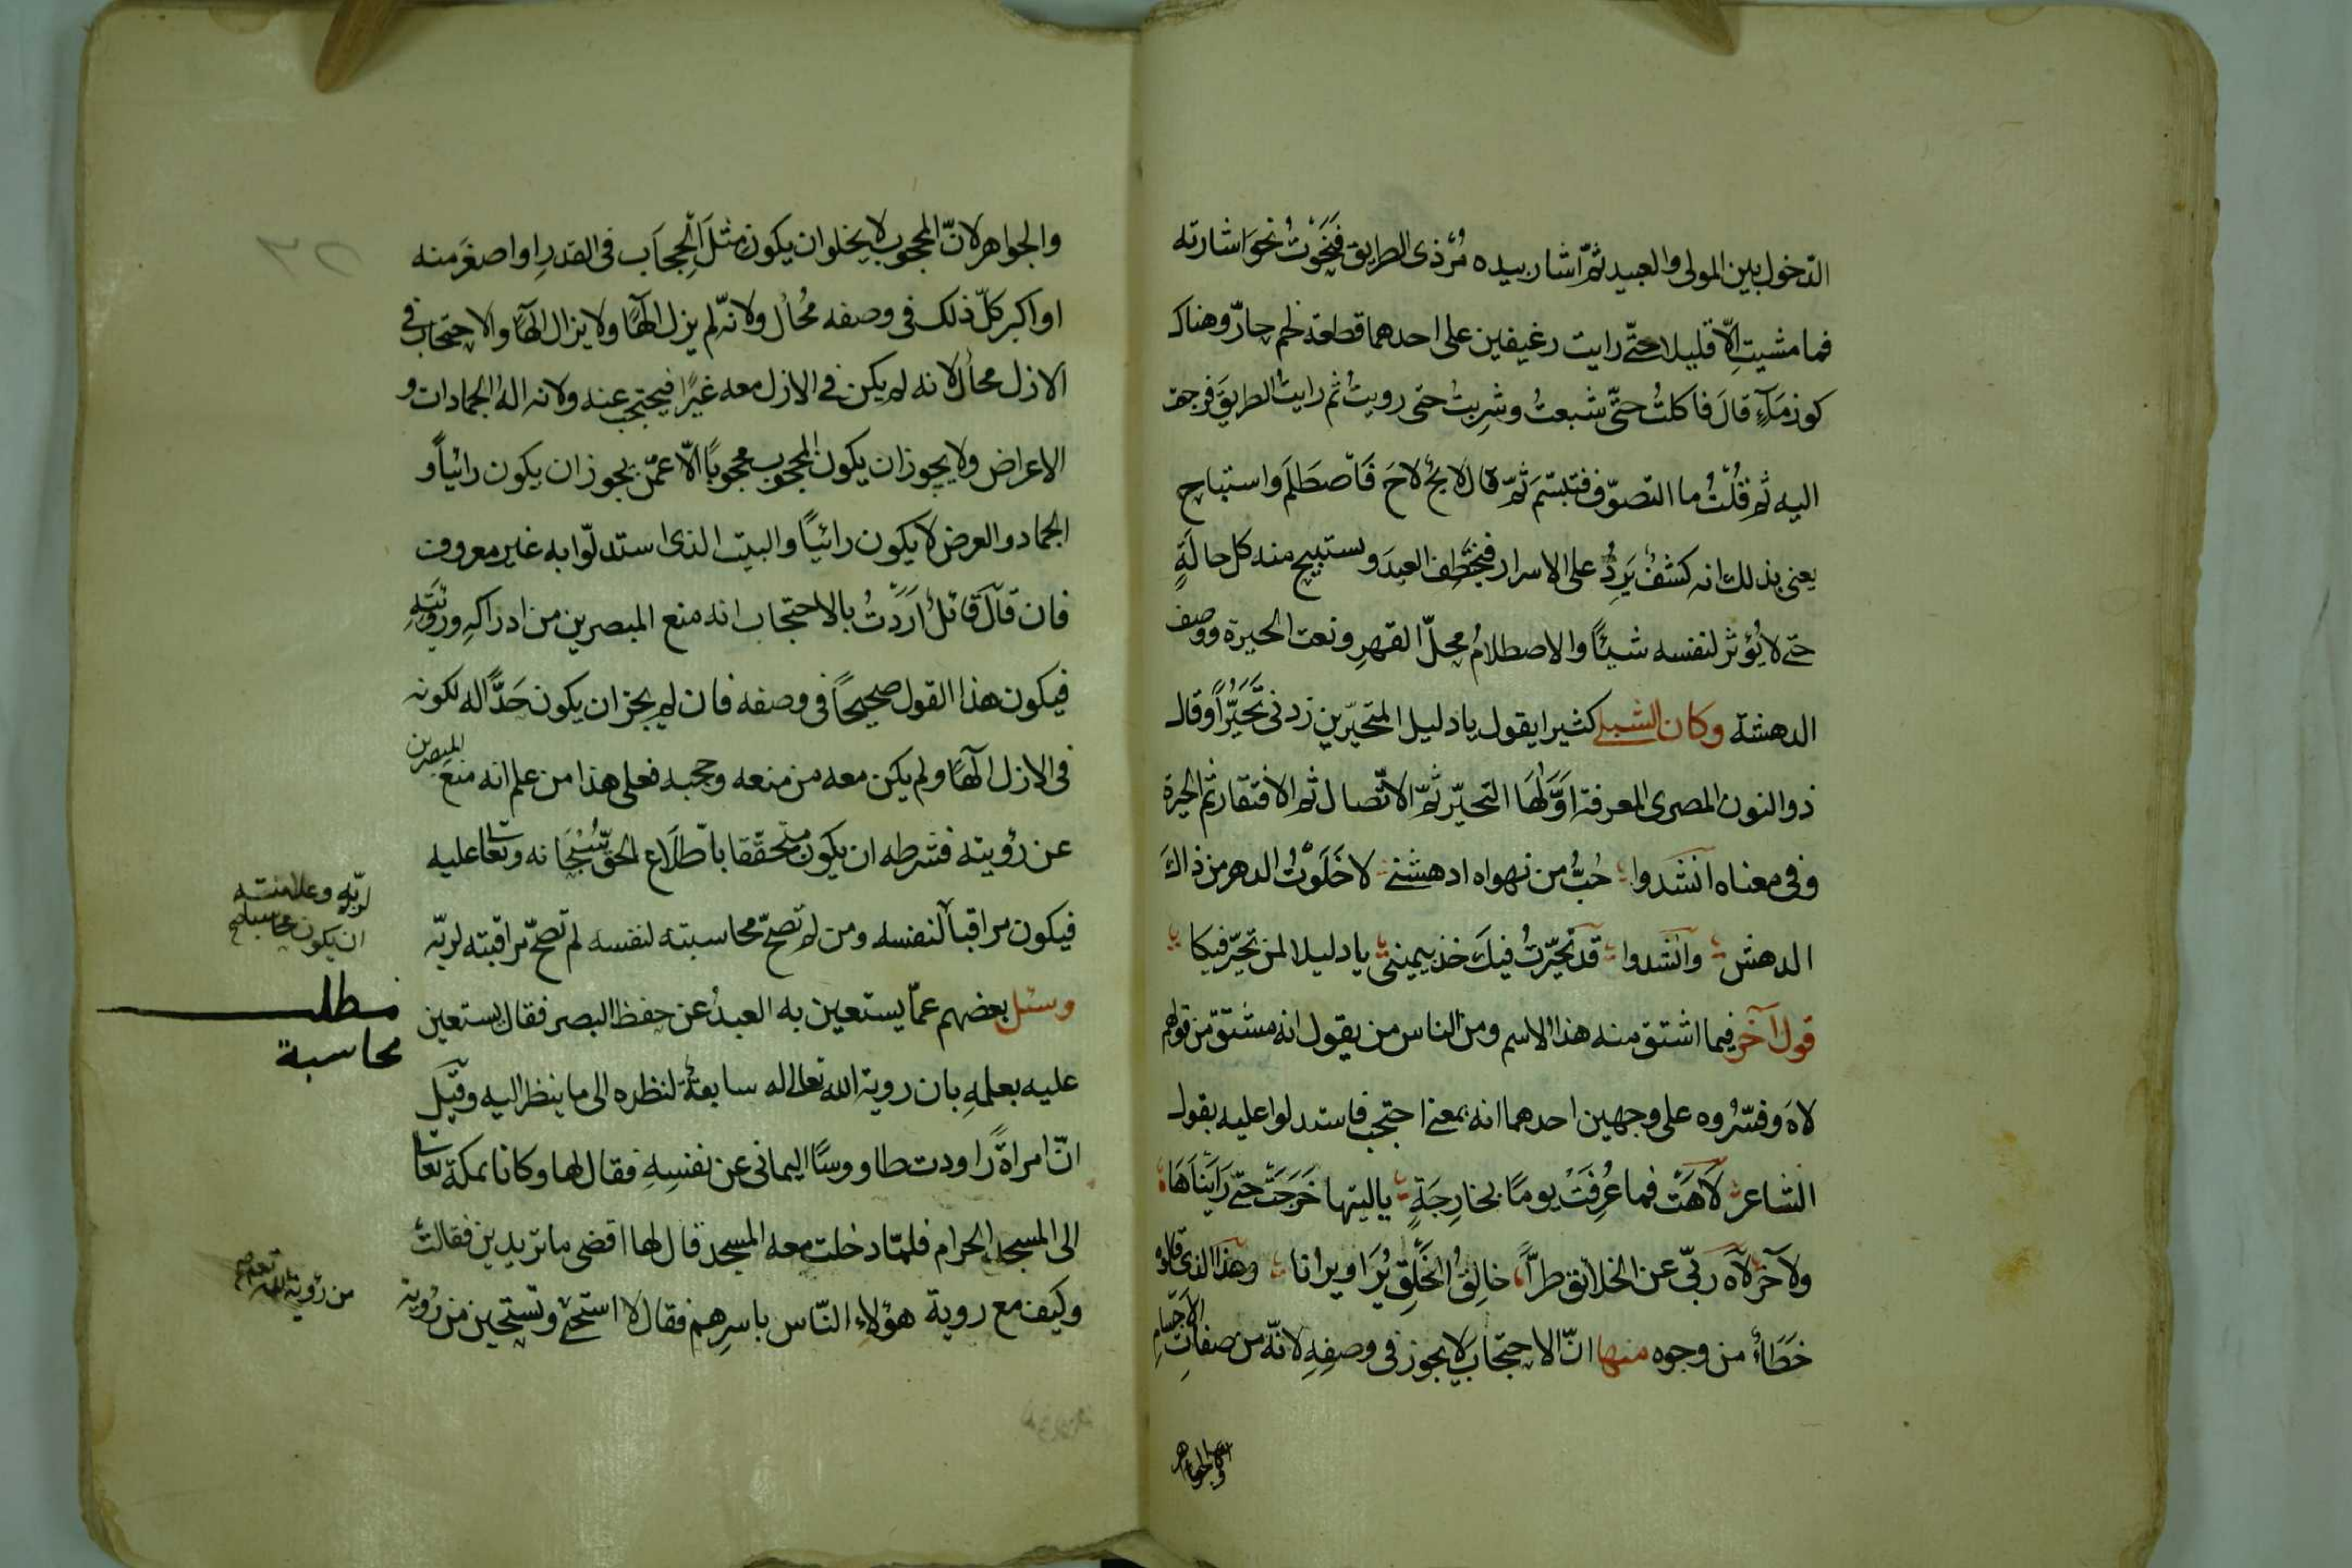 الدخول بين المولى والعبيد ثمّ اشار بيده مُرّ ذى الطريق فنَحَوْتُ نحوَ اشارته
فما مشيت اِلّا قليلا حتّى رايت رغيفين على احدهما قطعة لحم حارّ وهناك
كوز مَآءٍ قالَ فاكلتُ حتّى شبعتُ وشرِبتُ حتى رويتُ ثم رايتُ الطريقَ فرجعت
اليه ثم قُلْتُ ما التصوّف فتبسّمَ ثمّ قال لايحٌ لاحَ فَاصْطَلَمَ واستباح
يعنى بذلك انه كشفٌ يَرِدُ على الاسرار فيختَطِفُ العبدَ ويستبيح منه كل حالَةٍ
حتى لا يُؤثر لنفسه شيئًا والاصطلامُ محلّ القهرِ ونعت الحيرة ووصف
الدهشة وكان الشبلى كثيرا يقول يا دليل المتحيّرين زدنى تَحَيُّرًا وقال
ذو النون المصرى المعرفة اوَّلُهَا التحيّر ثمّ الاتّصال ثم الافتقار ثم الحيرة
وفى معناه انشدوا حُبُّ من نهواه ادهشنى لا خَلَوْتُ الدهر من ذاكَ
الدهش وانشدوا قد تحيّرتُ فيكَ خذ بيمينى يا دليلا لمن تحيّر فيكا
قول آخر فيما اشتق منه هذا الاسم ومن الناس من يقول انه مشتقّ من قولهم
لاهَ وفسّرُوه على وجهين احدهما انه بمعنى احتجب فاستدلوا عليه بقول
الشاعر لَاهَتْ فما عُرِفَتْ يومًا بخارِجَةٍ ياليتها خَرَجَتْ حتّى رَاَيْنَاهَا
ولآخر لَاه ربّى عن الخلائق طرًّا خالِقُ الخَلْقِ يُرَا ويرانا وهذا الذى قالوه
خَطَاءٌ من وجوه منها انّ الاحتجابَ لا يجوز فى وصفِهِ لانّه من صفاتِ الاَجسامِ
والجواهر
والجواهر لانّ المحجوب لا يخلو ان يكون مثلَ الحِجَابِ فى القدرِ او اصغرَ منه
او اكبر كلّ ذلك فى وصفه مُحالٌ ولانّه لم يزل الٓهًا ولا يزال الٓهًا والاحتجاب فى
الازل محالٌ لانه لم يكن فى الازل معه غيرًا فيحتجب عنه ولانه اله الجمادات و
الاعراض ولا يجوز ان يكون المحجوب محجوبًا الّا عمّن يجوز ان يكون رائيًا و
الجماد والعرض لا يكون رائيًا والبيت الذى استدلّوا به غير معروف
فان قالَ قائلٌ اَرَدْتُ بالاحتجاب انه منع المبصرين من ادراكهِ ورؤيَتِهِ
فيكون هذا القول صحيحًا فى وصفه فان لم يجز ان يكون حَدًّا له لكونه
فى الازل الٓهًا ولم يكن معه من منعه وحجبه فعلى هذا من علم انه منع المبصرين
عن رؤيته فشرطه ان يكون متحقّقا باطّلَاع الحقّ سُبْحَانه وتعا عليه
فيكون مراقبا لنفسه ومن لم تصحّ محاسبته لنفسه لم تصحّ مراقبته لربّه
وسئل بعضهم عمّا يستعين به العبدُ عن حفظ البصر فقال يستعين
عليه بعلمهِ بان روية الله تعالى له سابقةٌ لنظره الى ما ينظر اليه وقيلَ
انّ امراةً راودت طاووسًا اليمانى عن نفسِهِ فقال لها وكانا بمكة تعا
الى المسجد الحرام فلمّا دخلت معه المسجد قال لها اقضى ما تريدين فقالت
وكيف مع روية هؤلاءِ النّاس باسرِهم فقال لا استحى وتستحين من رُوية
لربّه وعلامته
ان يكون محاسبا صح
مطلب
محاسبة
من رؤية الله تعا صح